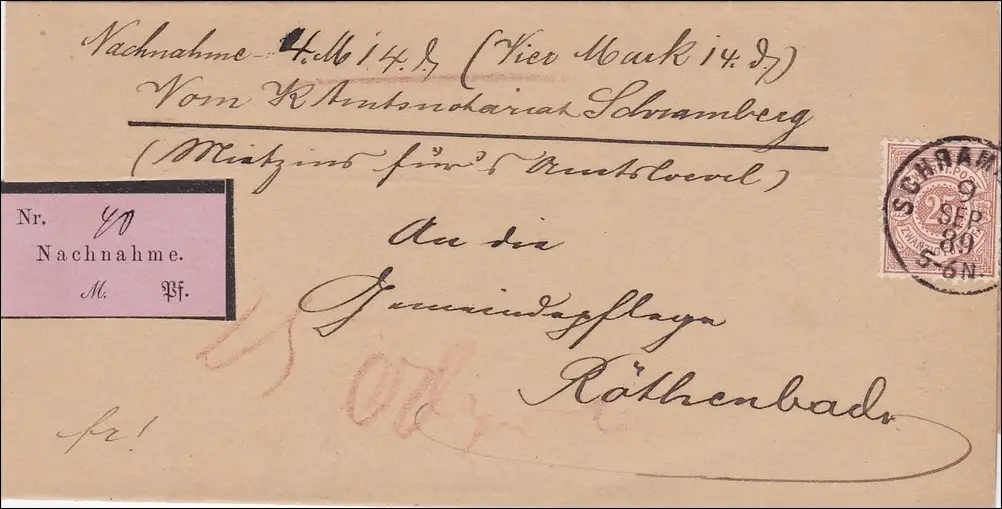 Nachnahme 4. M 14. ₰ (Vier Mark 14. ₰)
Vom K Amtsnotariat Schramberg
(Mietzins für's Amtslocal)
SCHRAM
9
SEP
89
5-6N.
PO
ZWANZ
Nr. 40
Nachnahme.
M. Pf.
An die
Gemeindepflege
Röthenbach
fr!